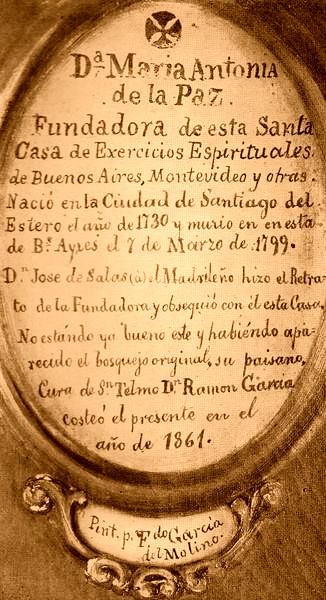 Dª. Maria Antonia
de la Paz.
Fundadora de esta Santa
Casa de Exercicios Espirituales
de Buenos Aires, Montevideo y otras.
Nació en la Ciudad de Santiago del
Estero el año de 1730 y murio en en esta
de Bs. Ayres el 7 de Marzo de 1799.
Dn. Jose de Salas (a) el Madrileño hizo el Retra-
to de la Fundadora y obsequió con él esta Casa.
No estándo ya bueno este y habiéndo apa-
recido el bosquejo original, su paisano,
Cura de Sn. Telmo Dn. Ramon Garcia
costeó el presente en el
año de 1861.
Pint. p. Fdo Garcia
del Molino.